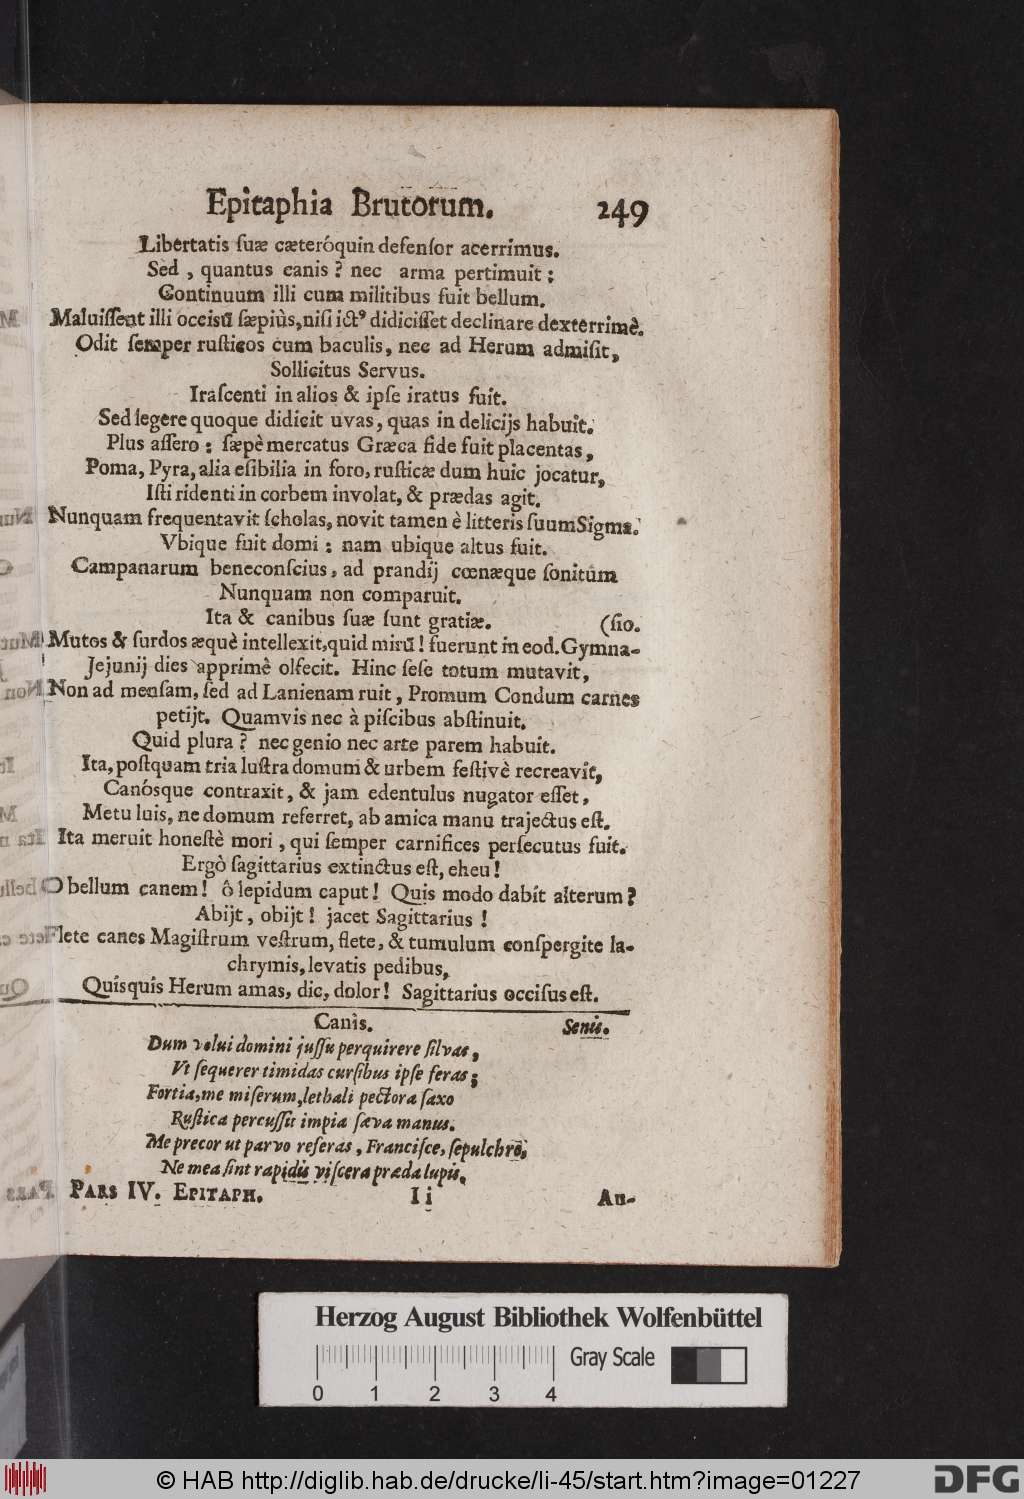 Epitaphia Brutorum. 249
Libertatis suæ cæteróquin defensor acerrimus.
Sed, quantus canis? nec arma pertimuit;
Continuum illi cum militibus fuit bellum.
Maluissent illi occisū sæpiùs, nisi ictꝰ didicisset declinare dexterrimè.
Odit semper rusticos cum baculis, nec ad Herum admisit,
Sollicitus Servus.
Irascenti in alios & ipse iratus fuit.
Sed legere quoque didicit uvas, quas in delicijs habuit.
Plus assero: sæpè mercatus Græca fide fuit placentas,
Poma, Pyra, alia esibilia in foro, rusticæ dum huic jocatur,
Isti ridenti in corbem involat, & prædas agit.
Nunquam frequentavit scholas, novit tamen è litteris suum Sigma.
Vbique fuit domi: nam ubique altus fuit.
Campanarum bene conscius, ad prandij cœnæque sonitum
Nunquam non comparuit.
Ita & canibus suæ sunt gratiæ. (sio.
Mutos & surdos æquè intellexit, quid mirū! fuerunt in eod. Gymna-
Jejunij dies apprimè olfecit. Hinc sese totum mutavit,
Non ad mensam, sed ad Lanienam ruit, Promum Condum carnes
petijt. Quamvis nec à piscibus abstinuit.
Quid plura? nec genio nec arte parem habuit.
Ita, postquam tria lustra domum & urbem festivè recreavit,
Canósque contraxit, & jam edentulus nugator esset,
Metu luis, ne domum referret, ab amica manu trajectus est.
Ita meruit honestè mori, qui semper carnifices persecutus fuit.
Ergò sagittarius extinctus est, eheu!
O bellum canem! ô lepidum caput! Quis modo dabit alterum?
Abijt, obijt! jacet Sagittarius!
Flete canes Magistrum vestrum, flete, & tumulum conspergite la-
chrymis, levatis pedibus,
Quísquis Herum amas, dic, dolor! Sagittarius occisus est.
Canis. Senis.
Dum volui domini jussu perquirere silvas,
Vt sequerer timidas cursibus ipse feras;
Fortia, me miserum, lethali pectora saxo
Rustica percussit impia sæva manus.
Me precor ut parvo reseras, Francisce, sepulchro,
Ne mea sint rapidis viscera præda lupis.
PARS IV. EPITAPH. Ii Au-
Herzog August Bibliothek Wolfenbüttel
Gray Scale
0 1 2 3 4
© HAB http://diglib.hab.de/drucke/li-45/start.htm?image=01227
DFG